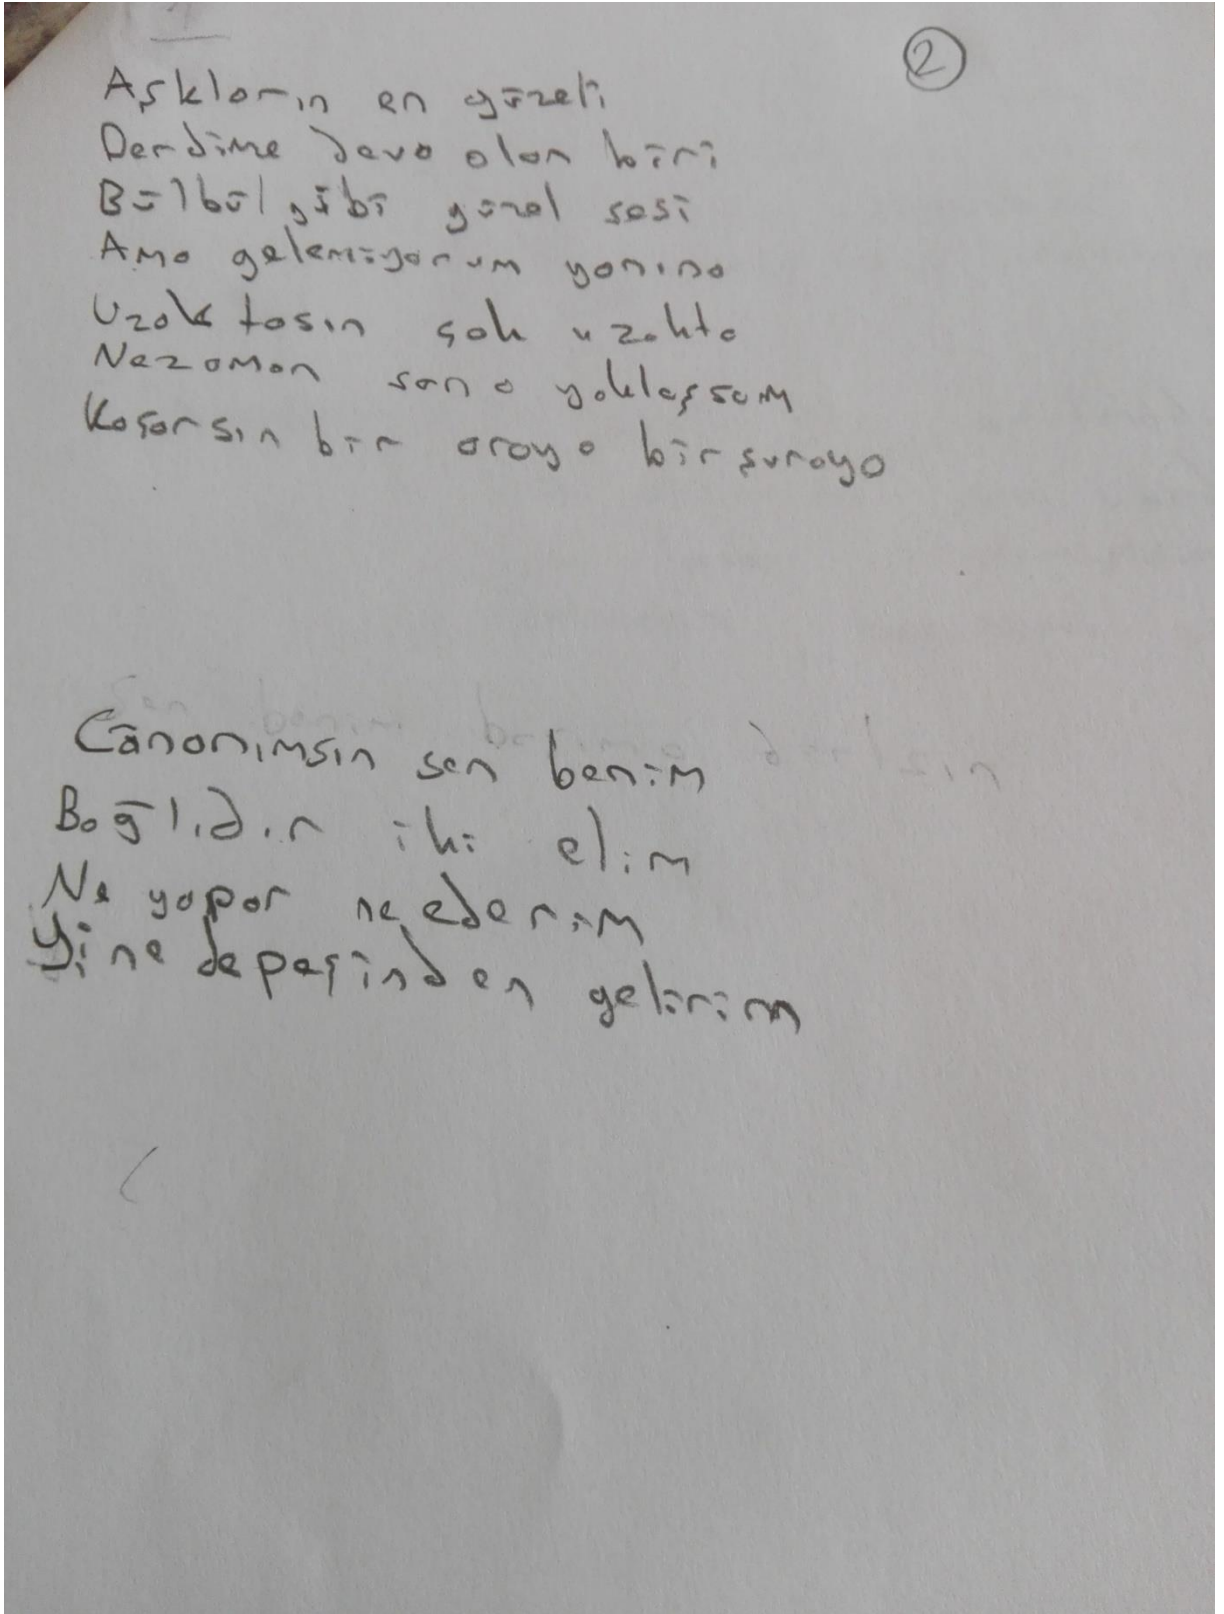 2
Aşkların en güzeli
Derdime deva olan biri
Bülbül gibi güzel sesi
Ama gelemiyorum yanına
Uzaktasın çok uzakta
Nezaman sana yaklaşsam
Kaçarsın bir oraya bir şuraya
Cananımsın sen benim
Bağlıdır iki elim
Ne yapar ne ederim
Yine depeşinden gelirim